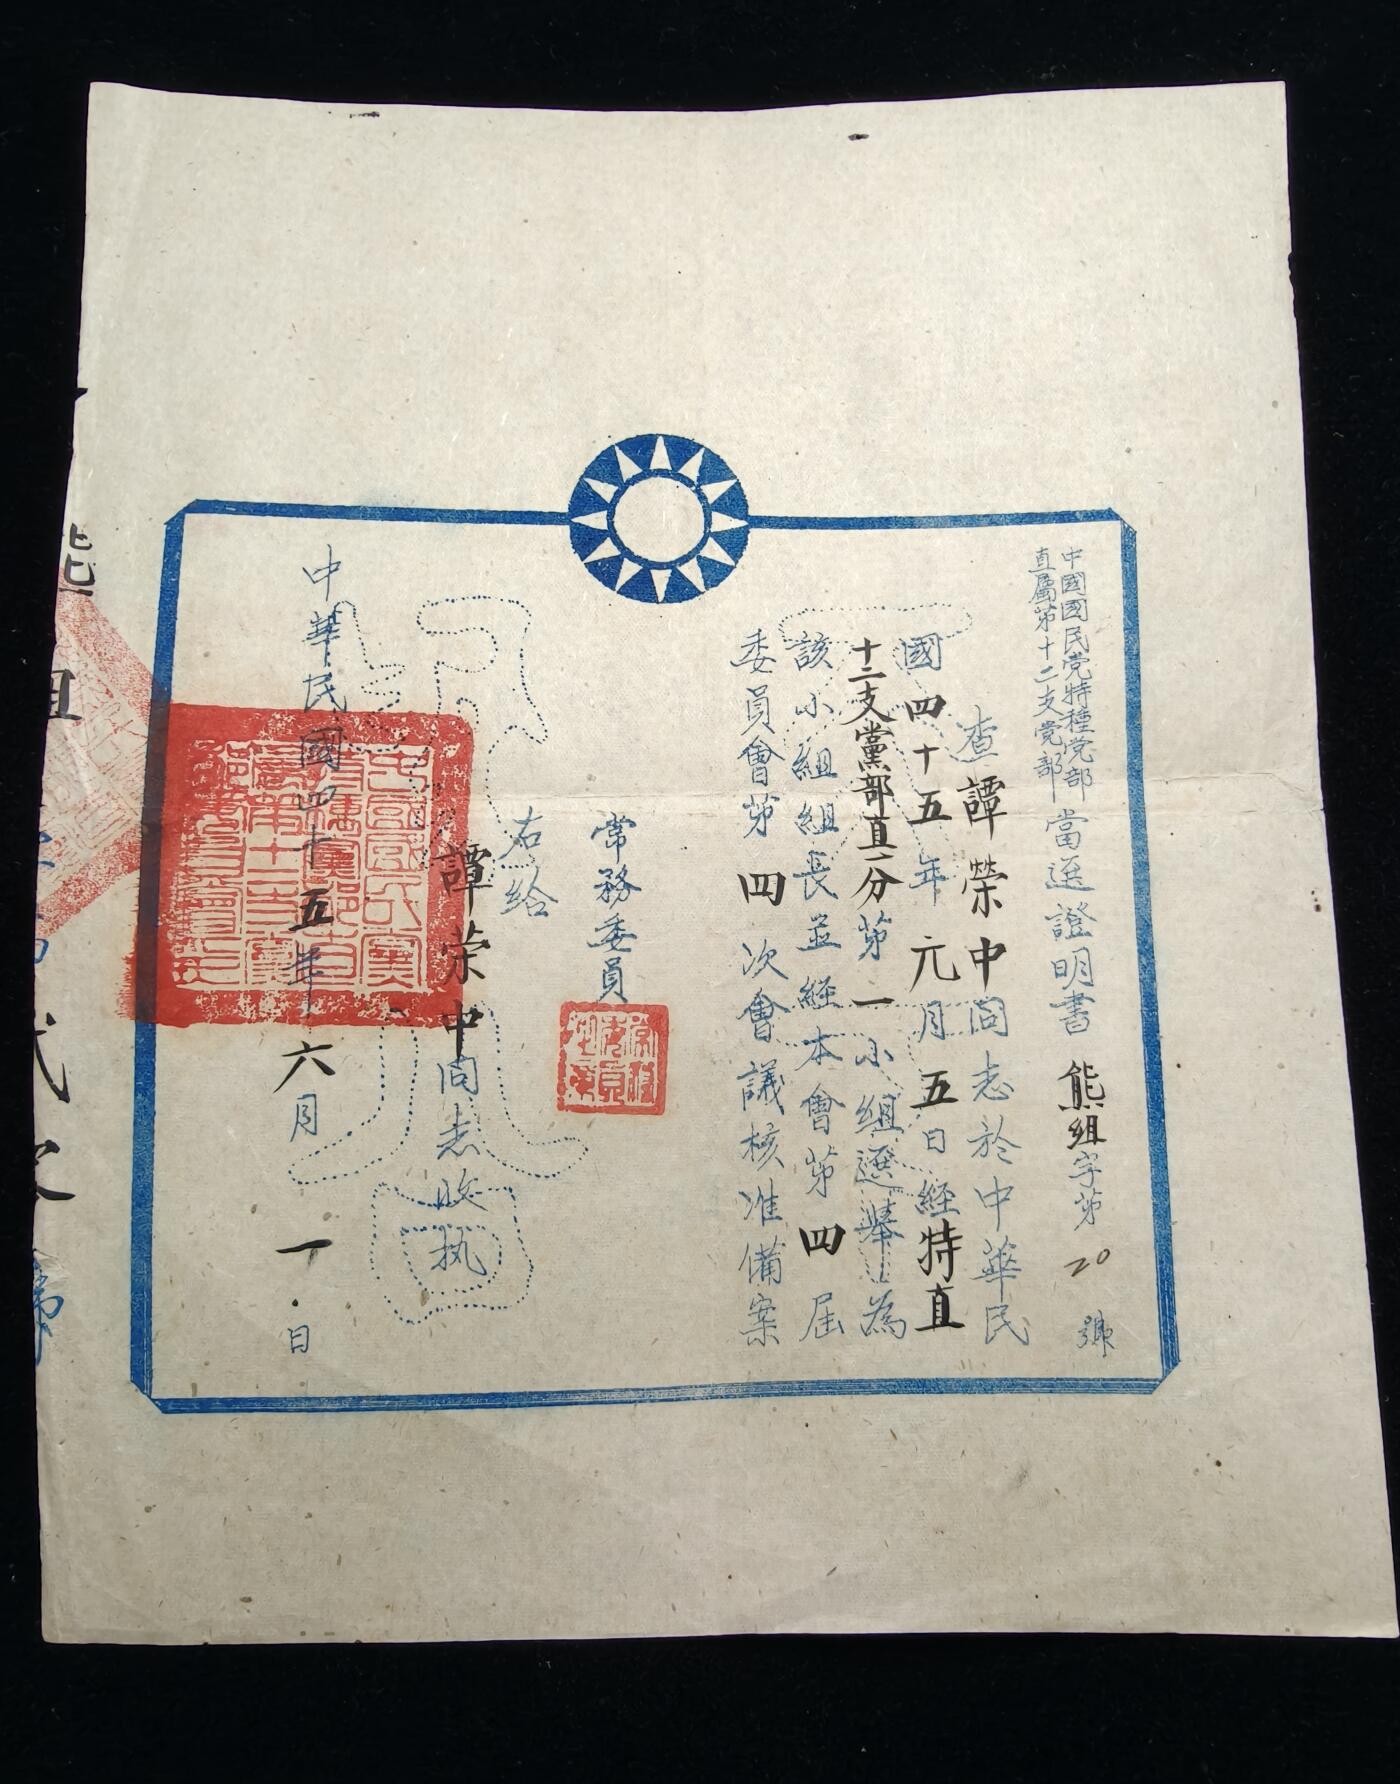 中國國民党特種党部
直屬第十二支党部
當選證明書 熊組字第20號
查譚榮中同志於中華民
國四十五年元月五日經特直
十二支黨部直一分第一小組選舉為
該小組組長並經本會第四屆
委員會第四次會議核准備案
常務委員
右給
譚荣中同志收执
中華民國四十五年六月一日